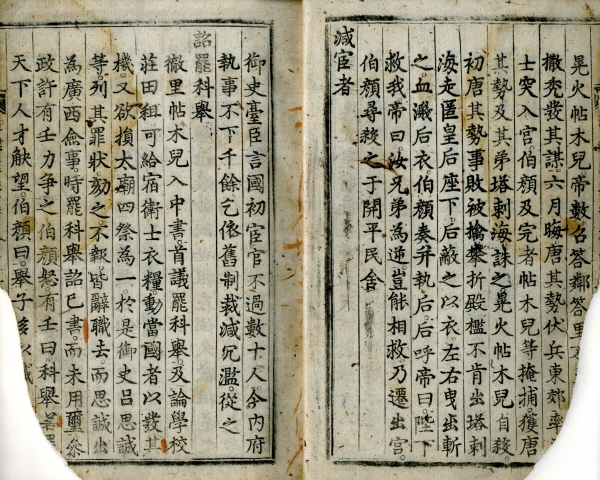 晃火帖木兒帝數召答鄰答里
撒禿發其謀六月晦唐其勢伏兵東郊率
士突入宮伯顏及完者帖木兒等掩捕獲唐
其勢及其弟塔剌海誅之晃火帖木兒自殺
初唐其勢事敗被擒攀折殿檻不肯出塔剌
海走匿皇后座下后蔽之以衣左右曳出斬
之血濺后衣伯顏奏并執后后呼帝曰陛下
救我帝曰汝兄弟為逆豈能相救乃遷出宮
伯顏尋殺之于開平民舍
減宦者
御史臺臣言國初宦官不過數十人今內府
執事不下千餘乞依舊制裁減冗濫從之
詔罷科舉
徹里帖木兒入中書首議罷科舉及論學校
莊田租可給宿衛士衣糧動當國者以發其
機又欲損太廟四祭為一於是御史呂思誠
等列其罪狀劾之不報皆辭職去而思誠出
為廣西僉事時罷科舉詔已書而未用璽叅
政許有壬力爭之伯顏怒有壬曰科舉若罷
天下人才觖望伯顏曰舉子多以贓